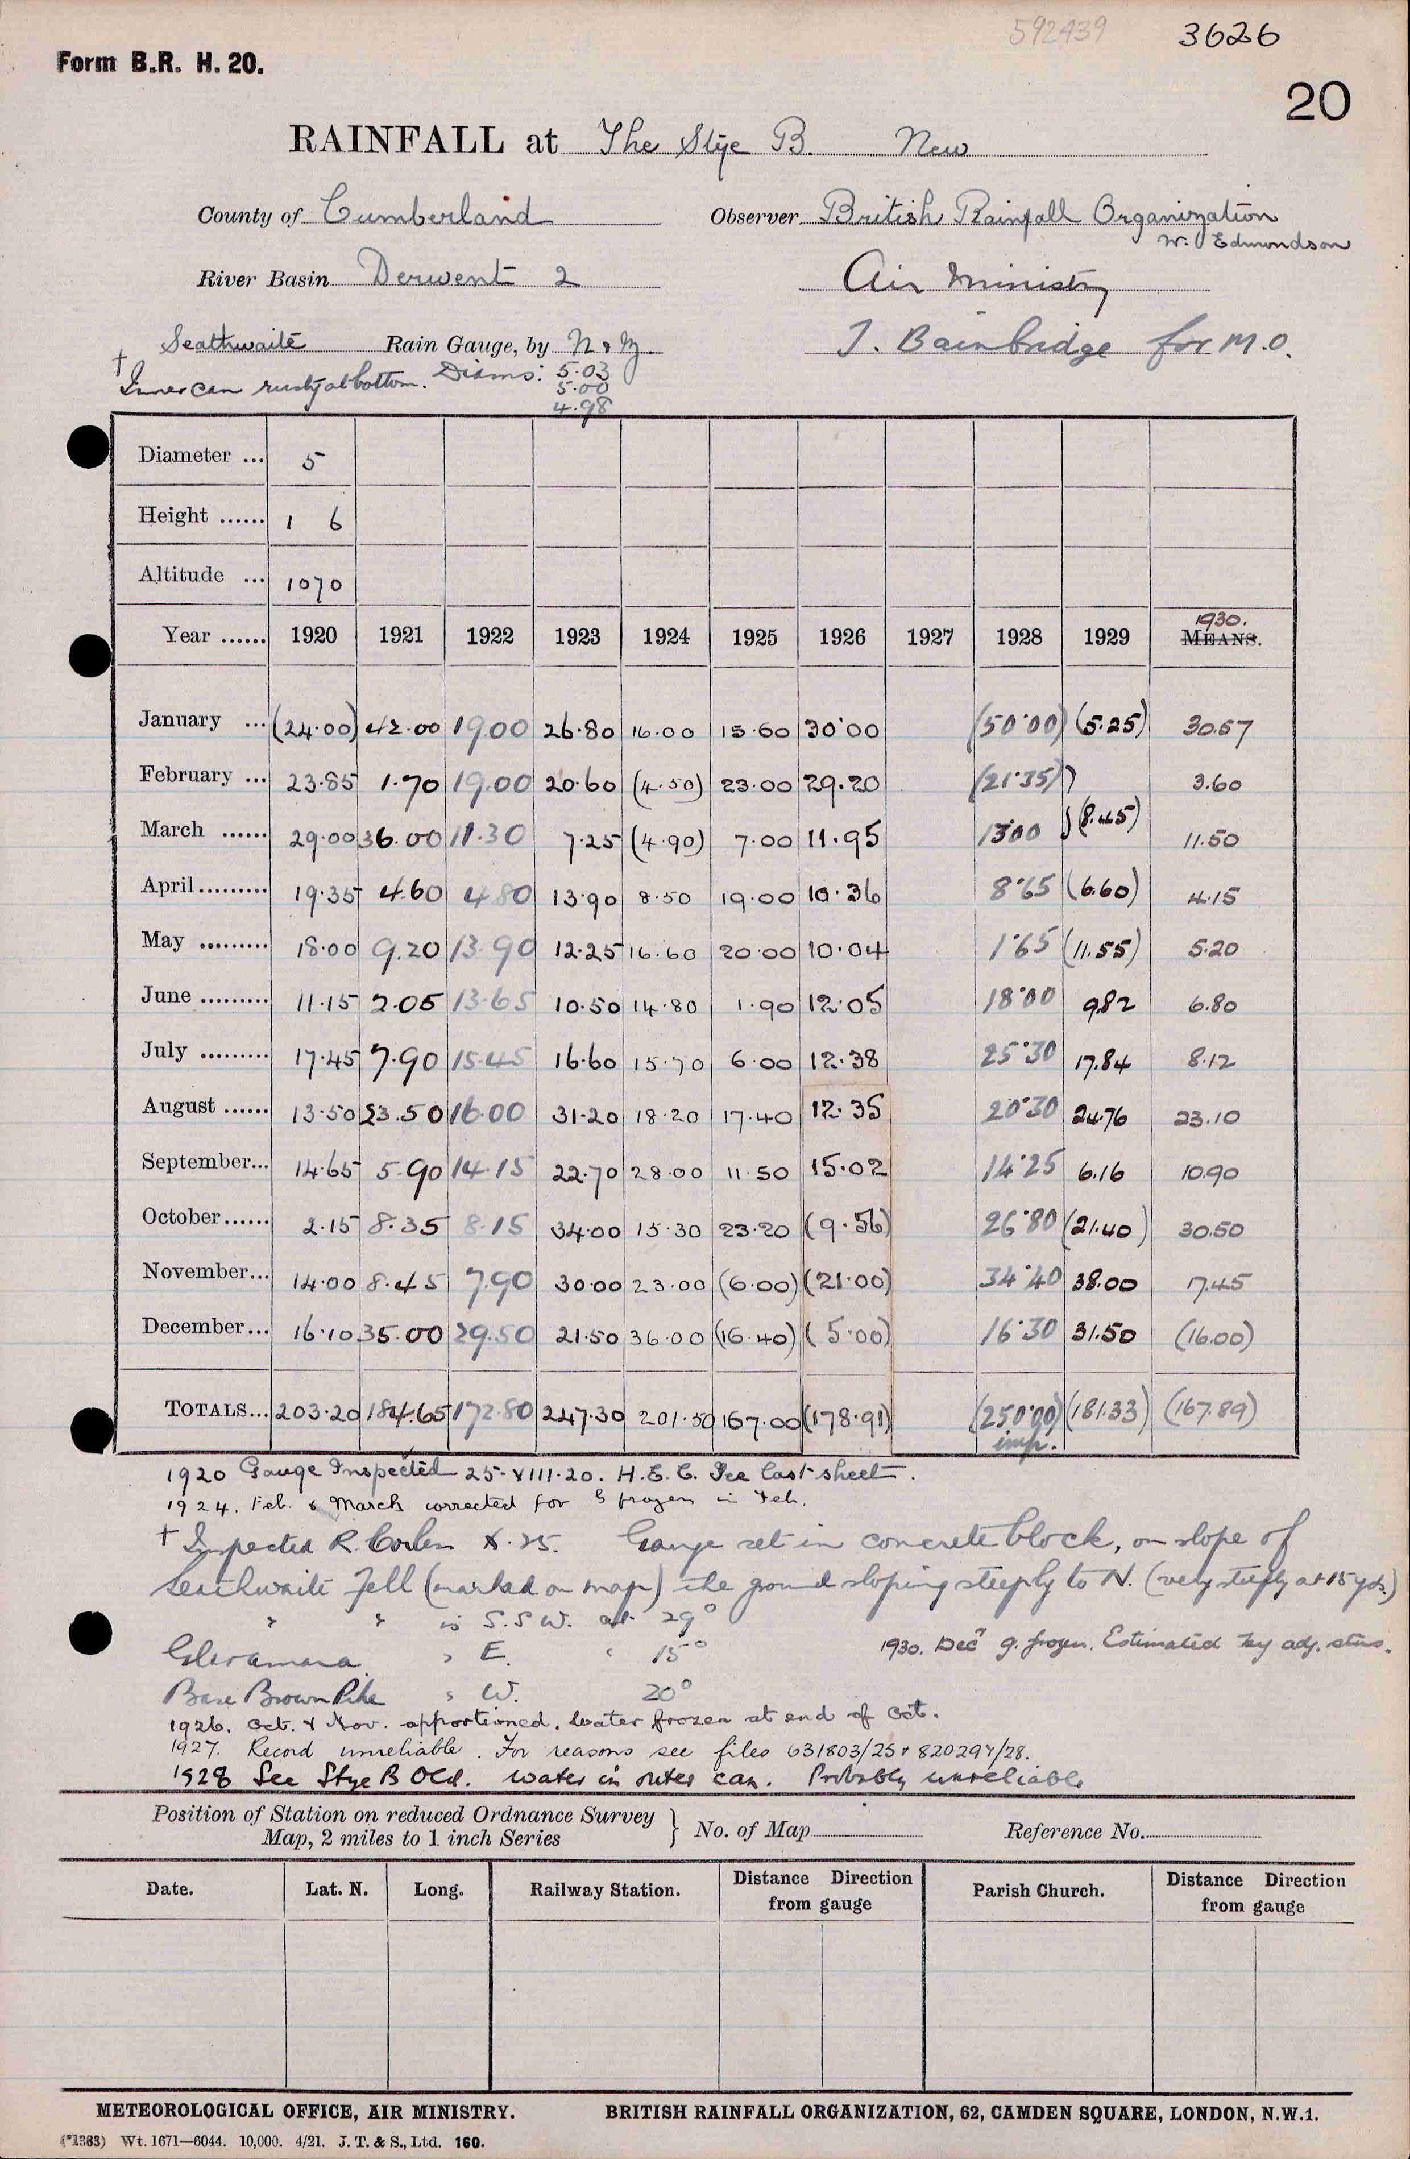 592439 3626
Form B.R. H. 20.
20
RAINFALL at The Stye B. New
County of Cumberland Observer British Rainfall Organization
W. Edmondson
River Basin Derwent 2 Air Ministry
Seathwaite Rain Gauge, by N & Z T. Bainbridge for M.O.
† Inner can rusty at bottom. Diams: 5.03
5.00
4.98
Diameter ... 5
Height ...... 1 6
Altitude ... 1070
Year ...... 1920 1921 1922 1923 1924 1925 1926 1927 1928 1929 1930. MEANS.
January ... (24.00) 42.00 19.00 26.80 16.00 15.60 30.00 (50.00) (5.25) 30.57
February ... 23.85 1.70 19.00 20.60 (4.50) 23.00 29.20 (21.35) } 3.60
March ...... 29.00 36.00 11.30 7.25 (4.90) 7.00 11.95 13.00 } (8.45) 11.50
April ......... 19.35 4.60 4.80 13.90 8.50 19.00 10.36 8.65 (6.60) 4.15
May ......... 18.00 9.20 13.90 12.25 16.60 20.00 10.04 1.65 (11.55) 5.20
June ......... 11.15 2.05 13.65 10.50 14.80 1.90 12.05 18.00 9.82 6.80
July ......... 17.45 7.90 15.45 16.60 15.70 6.00 12.38 25.30 17.84 8.12
August ...... 13.50 23.50 16.00 31.20 18.20 17.40 12.35 20.30 24.76 23.10
September... 14.65 5.90 14.15 22.70 28.00 11.50 15.02 14.25 6.16 10.90
October...... 2.15 8.35 8.15 34.00 15.30 23.20 (9.56) 26.80 (21.40) 30.50
November... 14.00 8.45 7.90 30.00 23.00 (6.00) (21.00) 34.40 38.00 17.45
December... 16.10 35.00 29.50 21.50 36.00 (16.40) (5.00) 16.30 31.50 (16.00)
TOTALS... 203.20 184.65 172.80 247.30 201.50 167.00 (178.91) (250.00) (181.33) (167.89)
imp.
1920 Gauge Inspected 25.VIII.20. H.E.C. See last sheet.
1924. Feb. & March corrected for g frozen in Feb.
† Inspected R. Corless X.25. Gauge set in concrete block, on slope of
Seathwaite Fell (marked on map) the ground sloping steeply to N. (very steeply at 15 yds.)
" " is S.S.W. at 29°
Glaramara " E. " 15°
1930. Decr g. frozen. Estimated by adj. stns.
Base Brown Pike " W. 20°
1926. Oct. & Nov. apportioned. Water frozen at end of Oct.
1927. Record unreliable. For reasons see files 631803/25 & 820297/28.
1928 See Stye B Old. Water in outer can. Probably unreliable
Position of Station on reduced Ordnance Survey
Map, 2 miles to 1 inch Series } No. of Map Reference No.
Date. Lat. N. Long. Railway Station. Distance Direction from gauge Parish Church. Distance Direction from gauge
METEOROLOGICAL OFFICE, AIR MINISTRY. BRITISH RAINFALL ORGANIZATION, 62, CAMDEN SQUARE, LONDON, N.W.1.
(*1363) Wt. 1671—6044. 10,000. 4/21. J. T. & S., Ltd. 160.